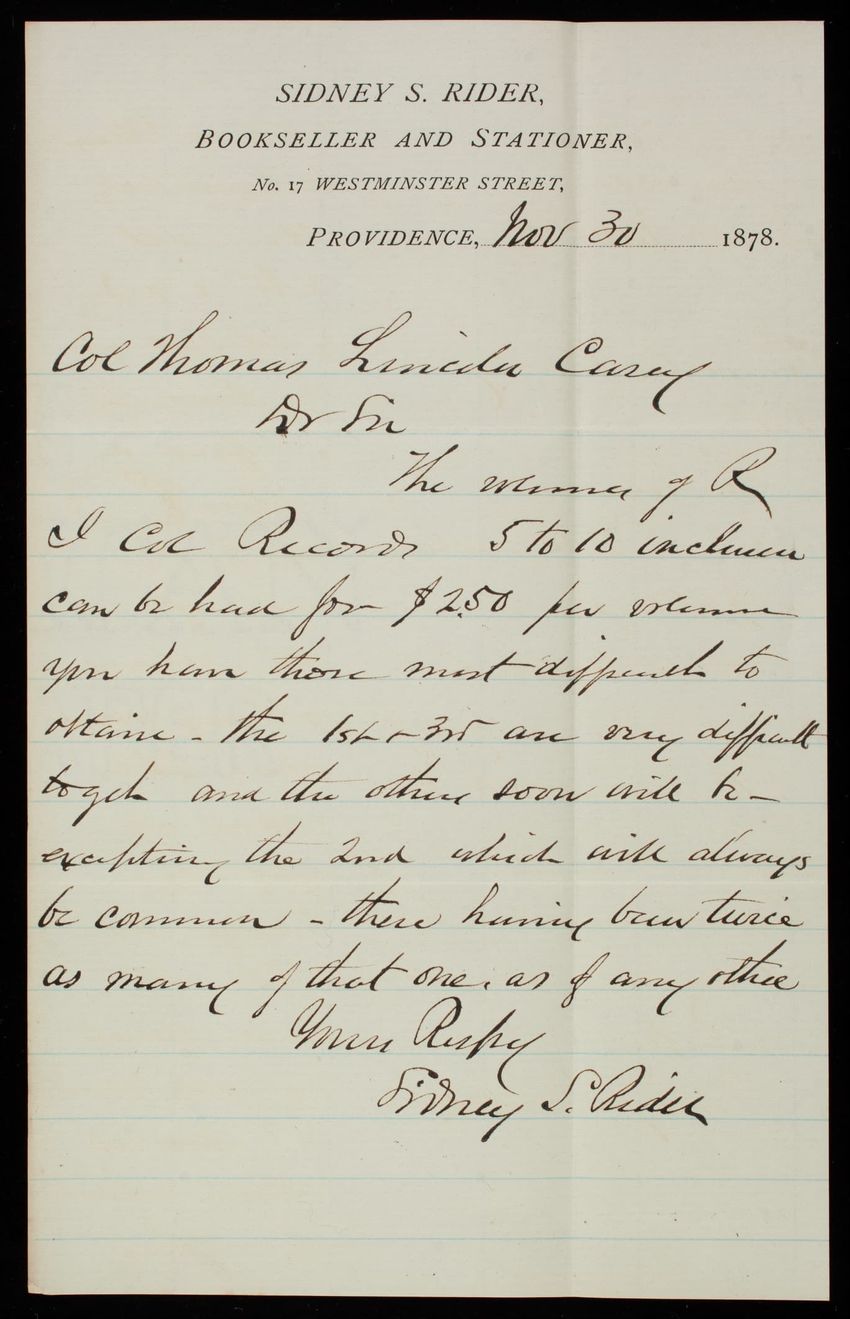 SIDNEY S. RIDER,
BOOKSELLER AND STATIONER,
No. 17 WESTMINSTER STREET,
PROVIDENCE, Nov 30 1878.
Col Thomas Lincoln Casey
Dr Sir
The volumes of R
I Col Records 5 to 10 inclusive
can be had for $2.50 per volume
you have those most difficult to
obtain - the 1st & 3rd are very difficult
to get and the others soon will be -
excepting the 2nd which will always
be common - there having been twice
as many of that one, as of any other
Yours Respy
Sidney S. Rider